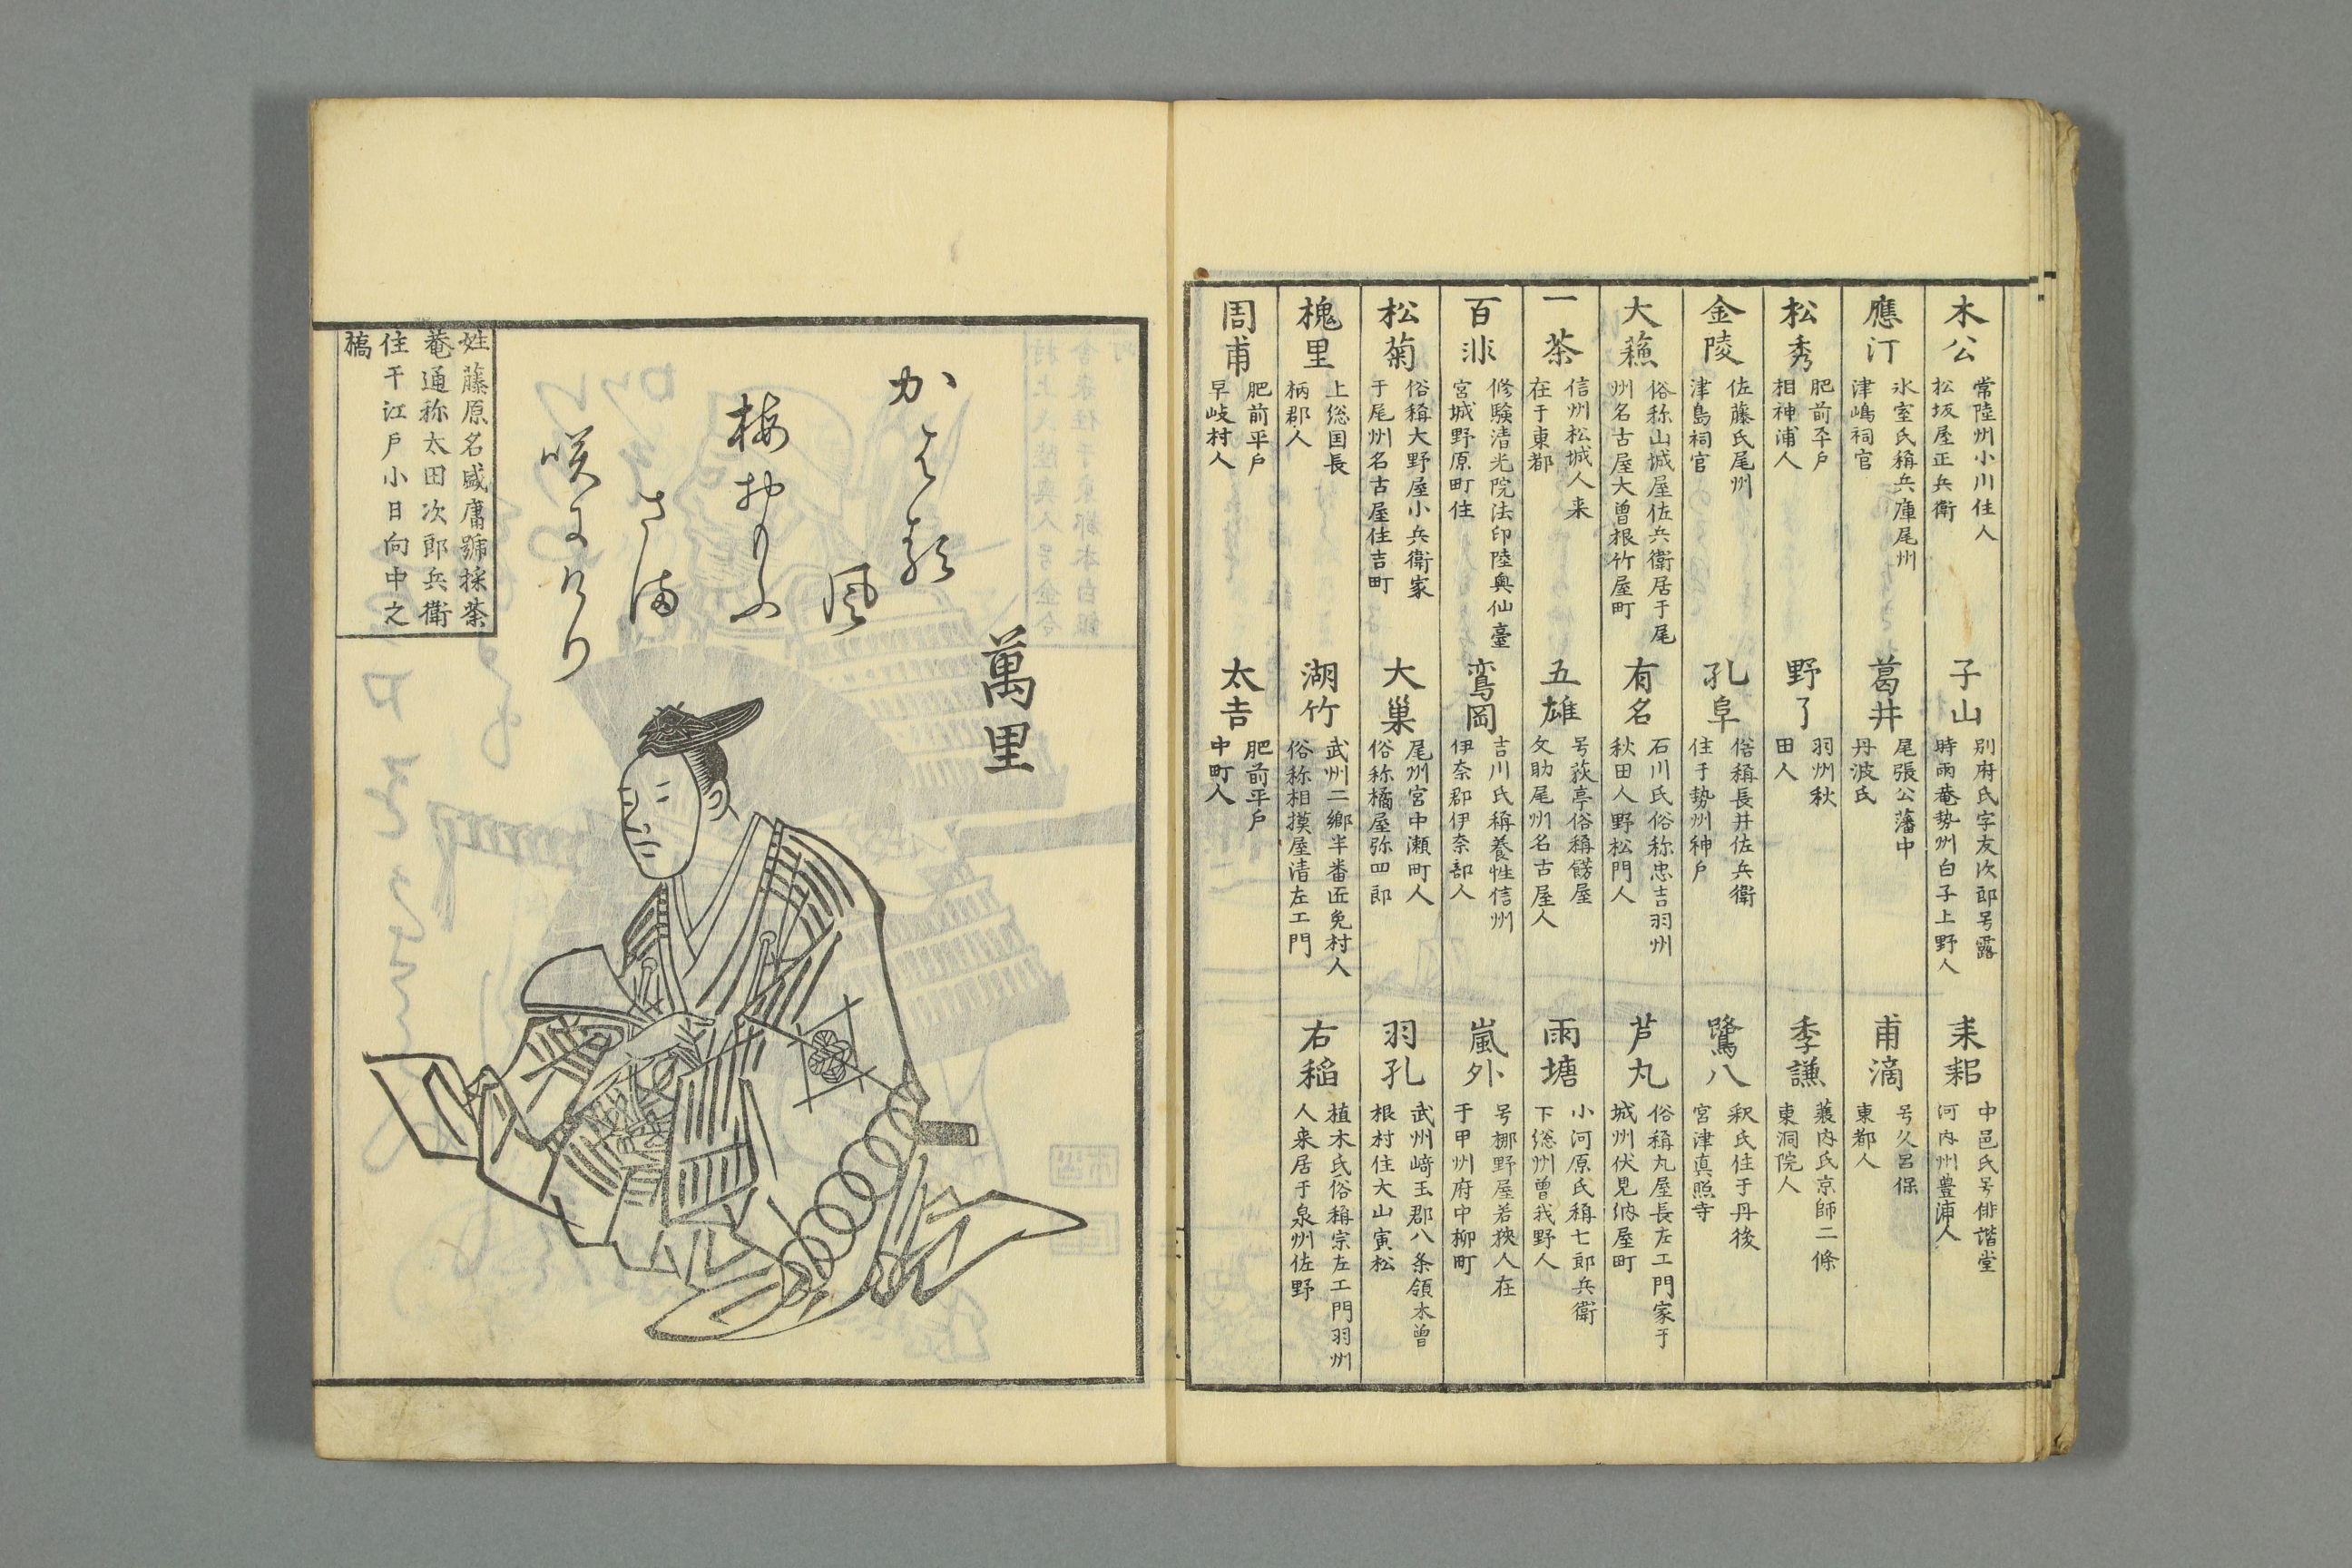 木公
常陸州小川住人
松坂屋正兵衛
子山
別府氏字友次郎号露
時雨菴勢州白子上野人
耒耜
中邑氏号俳諧堂
河内州豊浦人
應汀
氷室氏稱兵庫尾州
津嶋祠官
葛井
尾張公藩中
丹波氏
甫滴
号久呂保
東都人
松秀
肥前平戸
相神浦人
野了
羽州秋
田人
季謙
蓑内氏京師二條
東洞院人
金陵
佐藤氏尾州
津島祠官
孔阜
俗稱長井佐兵衛
住于勢州神戸
鷺八
釈氏住于丹後
宮津真照寺
大蘓
俗称山城屋佐兵衛居于尾
州名古屋大曽根竹屋町
有名
石川氏俗称忠吉羽州
秋田人野松門人
芦丸
俗稱丸屋長左工門家于
城州伏見納屋町
一茶
信州松城人来
在于東都
五雄
号荻亭俗稱餝屋
文助尾州名古屋人
雨塘
小河原氏稱七郎兵衛
下総州曽我野人
百非
修験清光院法印陸奥仙臺
宮城野原町住
鸞岡
吉川氏稱養性信州
伊奈郡伊奈部人
嵐外
号梛野屋若狹人在
于甲州府中柳町
松菊
俗稱大野屋小兵衛家
于尾州名古屋住吉町
大巣
尾州宮中瀬町人
俗称橘屋弥四郎
羽孔
武州﨑玉郡八条領木曽
根村住大山寅松
槐里
上総国長
柄郡人
湖竹
武州二郷半番匠免村人
俗称相摸屋清左工門
右稲
植木氏俗稱宗左工門羽州
人来居于泉州佐野
周甫
肥前平戸
早岐村人
太吉
肥前平戸
中町人
萬里
かはる
風
梅おもふ
さま
咲にけり
姓藤原名盛庸號採荼
菴通称太田次郎兵衛
住于江戸小日向中之
橋